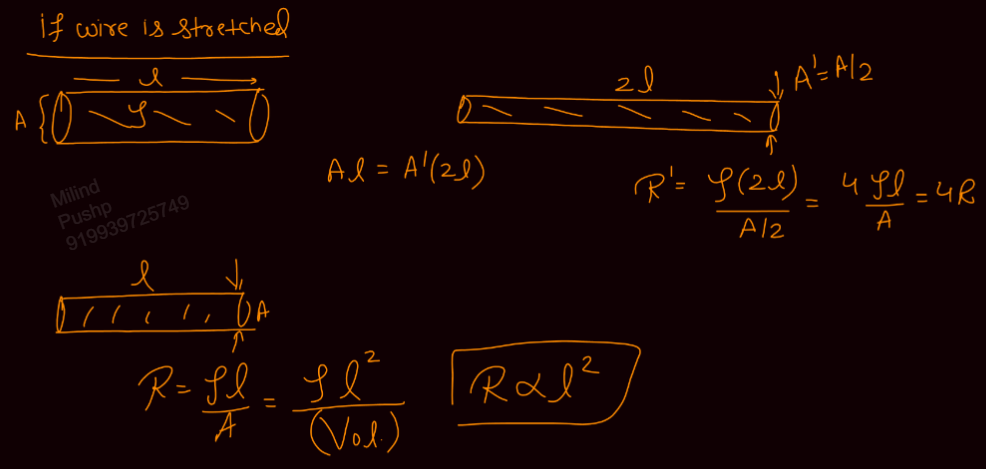 if wire is stretched
l
A { ρ
2l
A' = A/2
Al = A'(2l)
R' = ρ(2l) / A/2 = 4 ρl / A = 4R
Milind
Pushp
919939725749
l
A
R = ρl / A = ρl² / (Vol.)
R ∝ l²